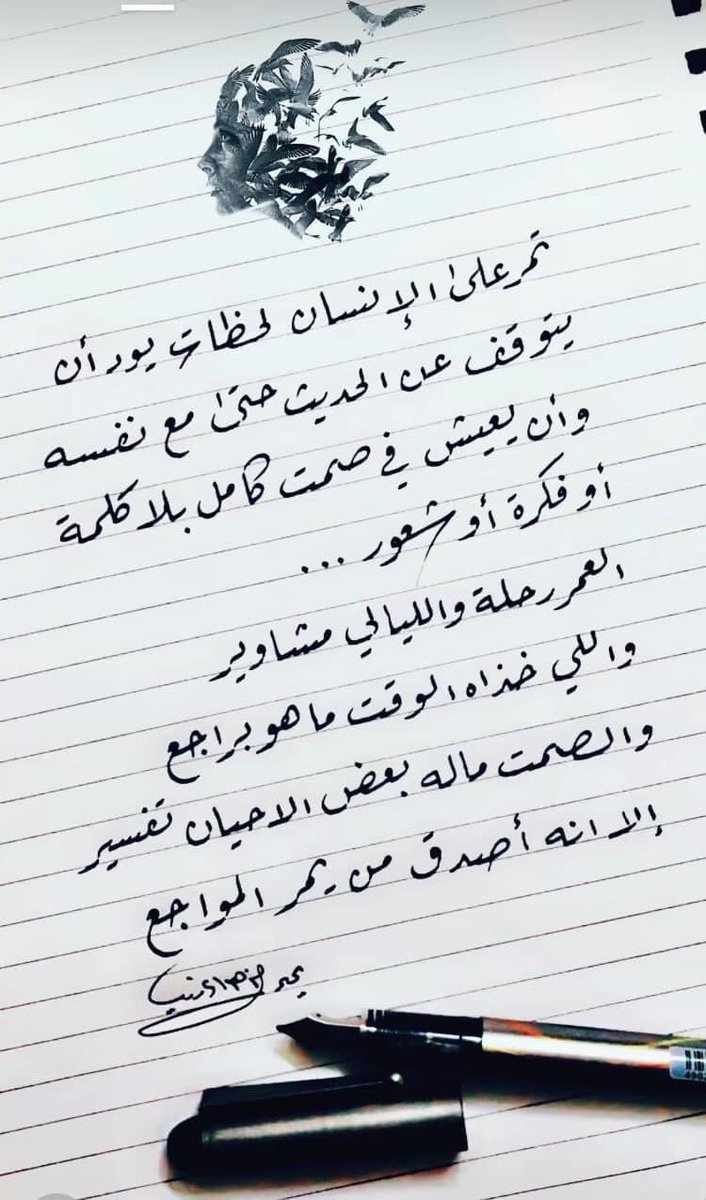 تمر على الإنسان لحظات يود أن
يتوقف عن الحديث حتى مع نفسه
وأن يعيش في صمت كامل بلا كلمة
أو فكرة أو شعور ...
العمر رحلة والليالي مشاوير
واللي خذاه الوقت ما هو براجع
والصمت ماله بعض الاحيان تفسير
إلا انه أصدق من يمر المواجع